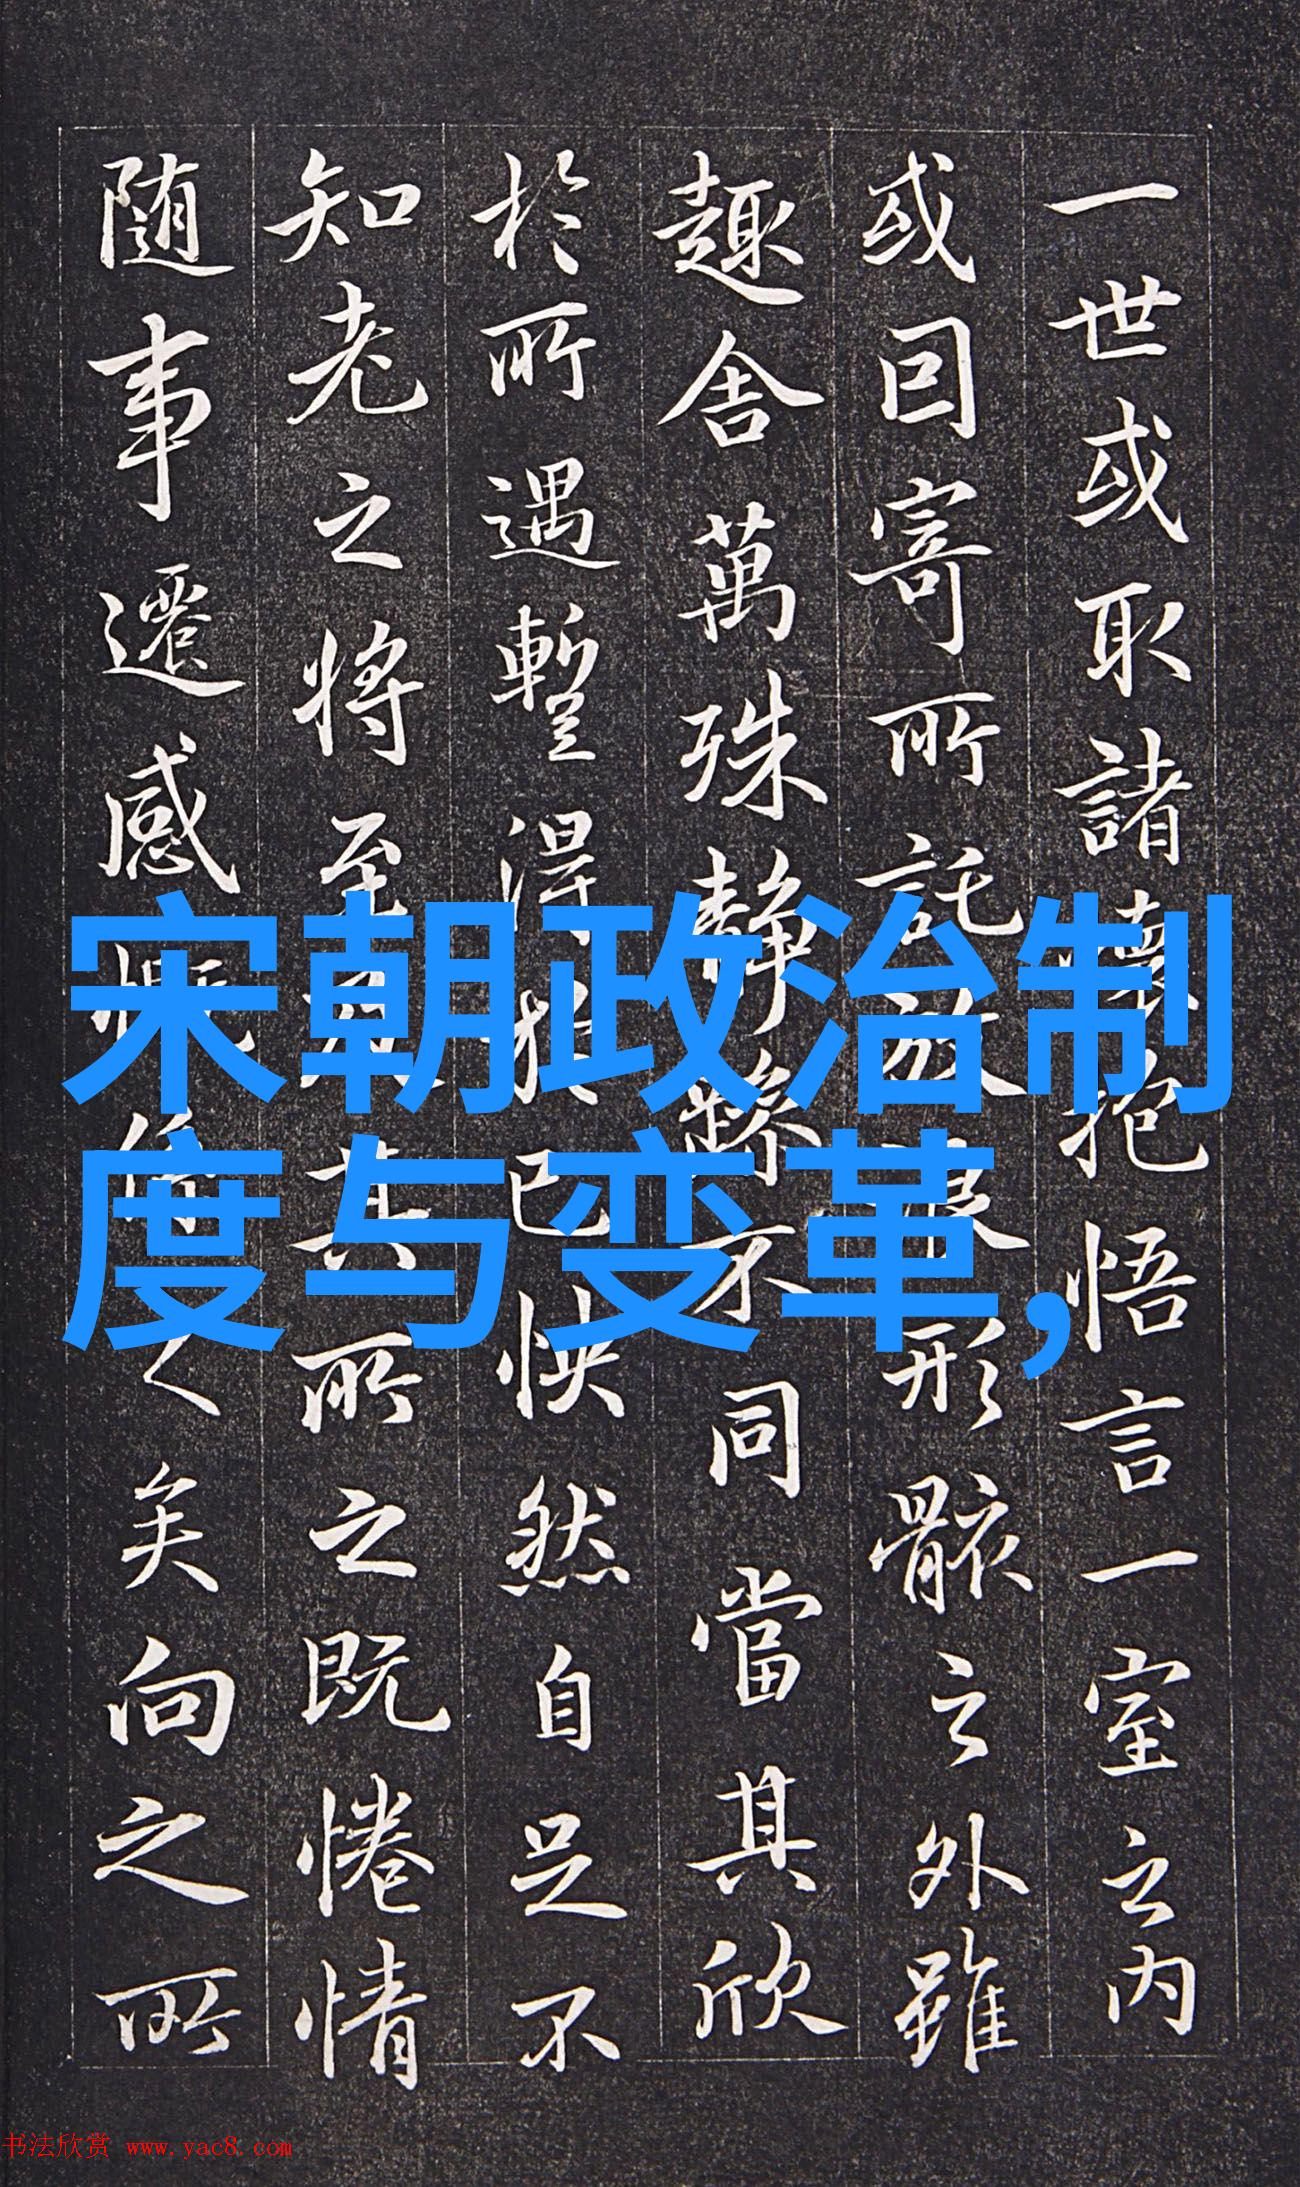 一世或取諸懷抱悟言一室之内
或囙寄所託放浪形骸之外雖
趣舍萬殊静躁不同當其欣
於所遇暫得於己怏然自足不
知老之將至及其所之既惓情
随事遷感慨係之矣向之所
宋朝政治制
度与变革,
书法欣赏 www.yac8.com